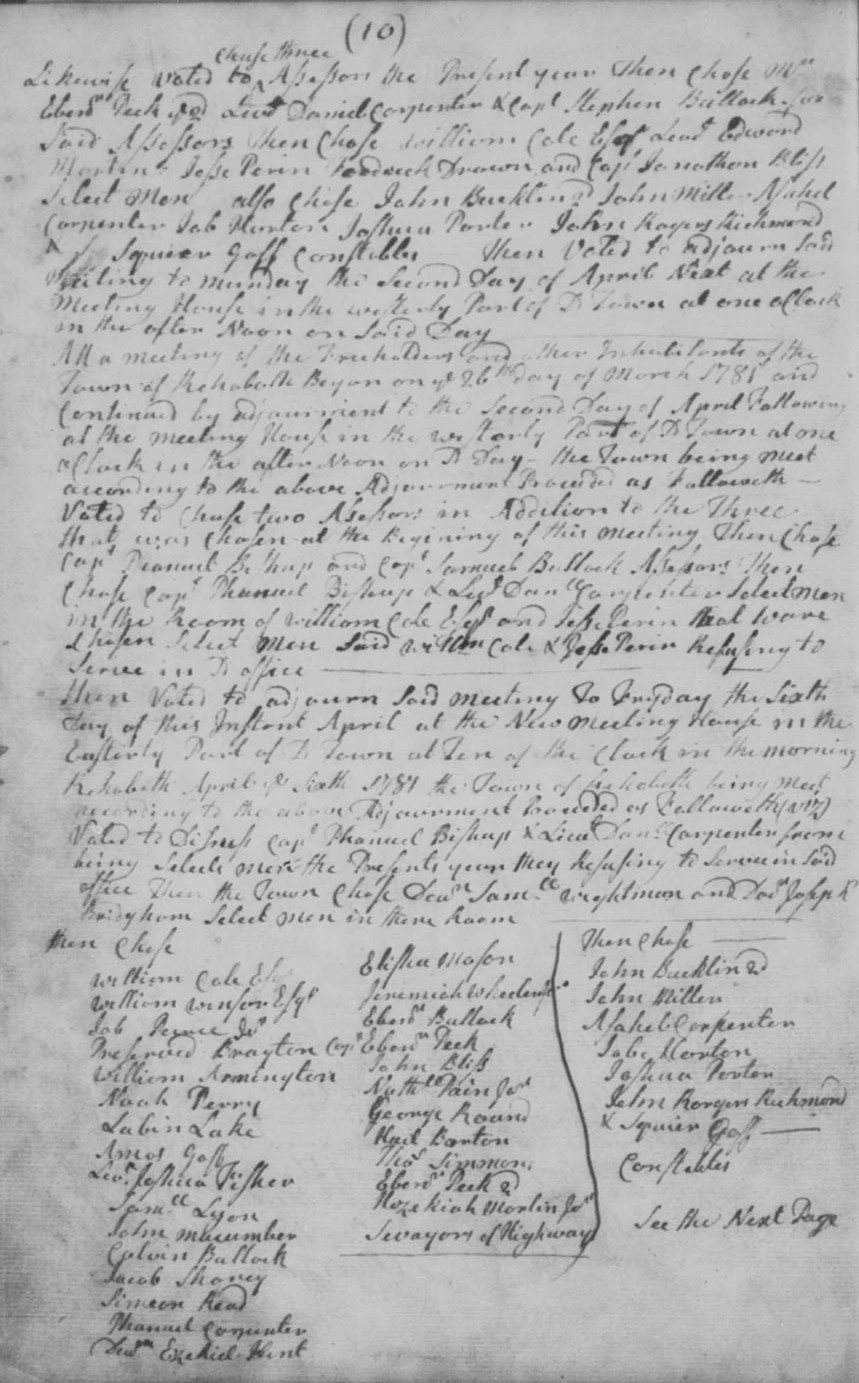 (10)
chuse three
Likewise Voted to Assessors the Present year Then Chose Mr
Ebenr Peek Lieut Daniel Carpenter & Capt Stephen Bullock for
Said Assessors Then Chose William Cole Esqr Lieut Edword
Martin Jesse Perin Fredrick Drown and Capt Jonathan Bliss
Select Men also Chose John Bucklin 2d John Miller Asahel
Carpenter Job Horton Joshua Porter John Rogers Richmond
Squier Goff Constables Then Voted to adjourn Said
Meeting to munday the Second Day of April Next at the
Meeting House in the westerly Part of D Town at one aClock
in the after Noon on Said Day
Att a meeting of the Freeholders and other Inhabitants of the
Town of Rehoboth Begun on ye 26th day of March 1781 and
Continued by adjournment to the Second Day of April Following
at the meeting House in the westerly Part of D Town at one
aClock in the after Noon on D Day - the Town being meet
according to the above Adjournment Proceded as Followeth -
Voted to Chuse two Asessors in Addition to the Three
that was Chosen at the Begining of this meeting Then Chose
Capt Phanuel Bishup and Capt Samuel Bullock Assessors Then
Chose Capt Phanuel Bishup & Lieut Danll Carpenter Select men
in the Room of William Cole Esqr and Jesse Perin that ware
Chosen Select Men Said Willm Cole & Jesse Perin Refusing to
Serve in D office
then Voted to adjourn Said meeting To Fryday the Sixth
Day of this Instant April at the New meeting House in the
Easterly Part of D Town at Ten of the Clock in the morning
Rehoboth April ye Sixth 1781 the Town of Rehoboth being meet
according to the above Adjournment Proceded as Followeth (viz)
Voted to Dismess Capt Phanuel Bishup & Lieut Danll Carpenter from
being Selects men the Presents year they Refusing to Serve in Said
office Then the Town Chose Deacn Samll Wightman and Deacn Joseph
Bridgham Select men in there Room
then Chose
William Cole Esqr
William Winsor Esqr
Job Peirce Jur
Preserved Brayton
William Armington
Noah Perry
Labin Lake
Amos Goff
Lieut Joshua Fisher
Samll Lyon
John Macumber
Colvin Bullock
Jacob Shorey
Simeon Read
Phanuel Carpenter
Deacn Ezekiel Hunt
Elisha Mason
Jeremiah Wheeler
Ebenr Bullock
Capt Ebenr Peek
John Bliss
Nathll Pain Jur
George Round
Hail Barton
Thos Simmons
Ebenr Peek 2d
Hezekiah Martin Jur
Sevayors of Highways
Then Chose
John Bucklin 2d
John Miller
Asahel Carpenter
Jobe Horton
Joshua Porter
John Rorgers Richmond
& Squier Goff
Constables
See the Next Page